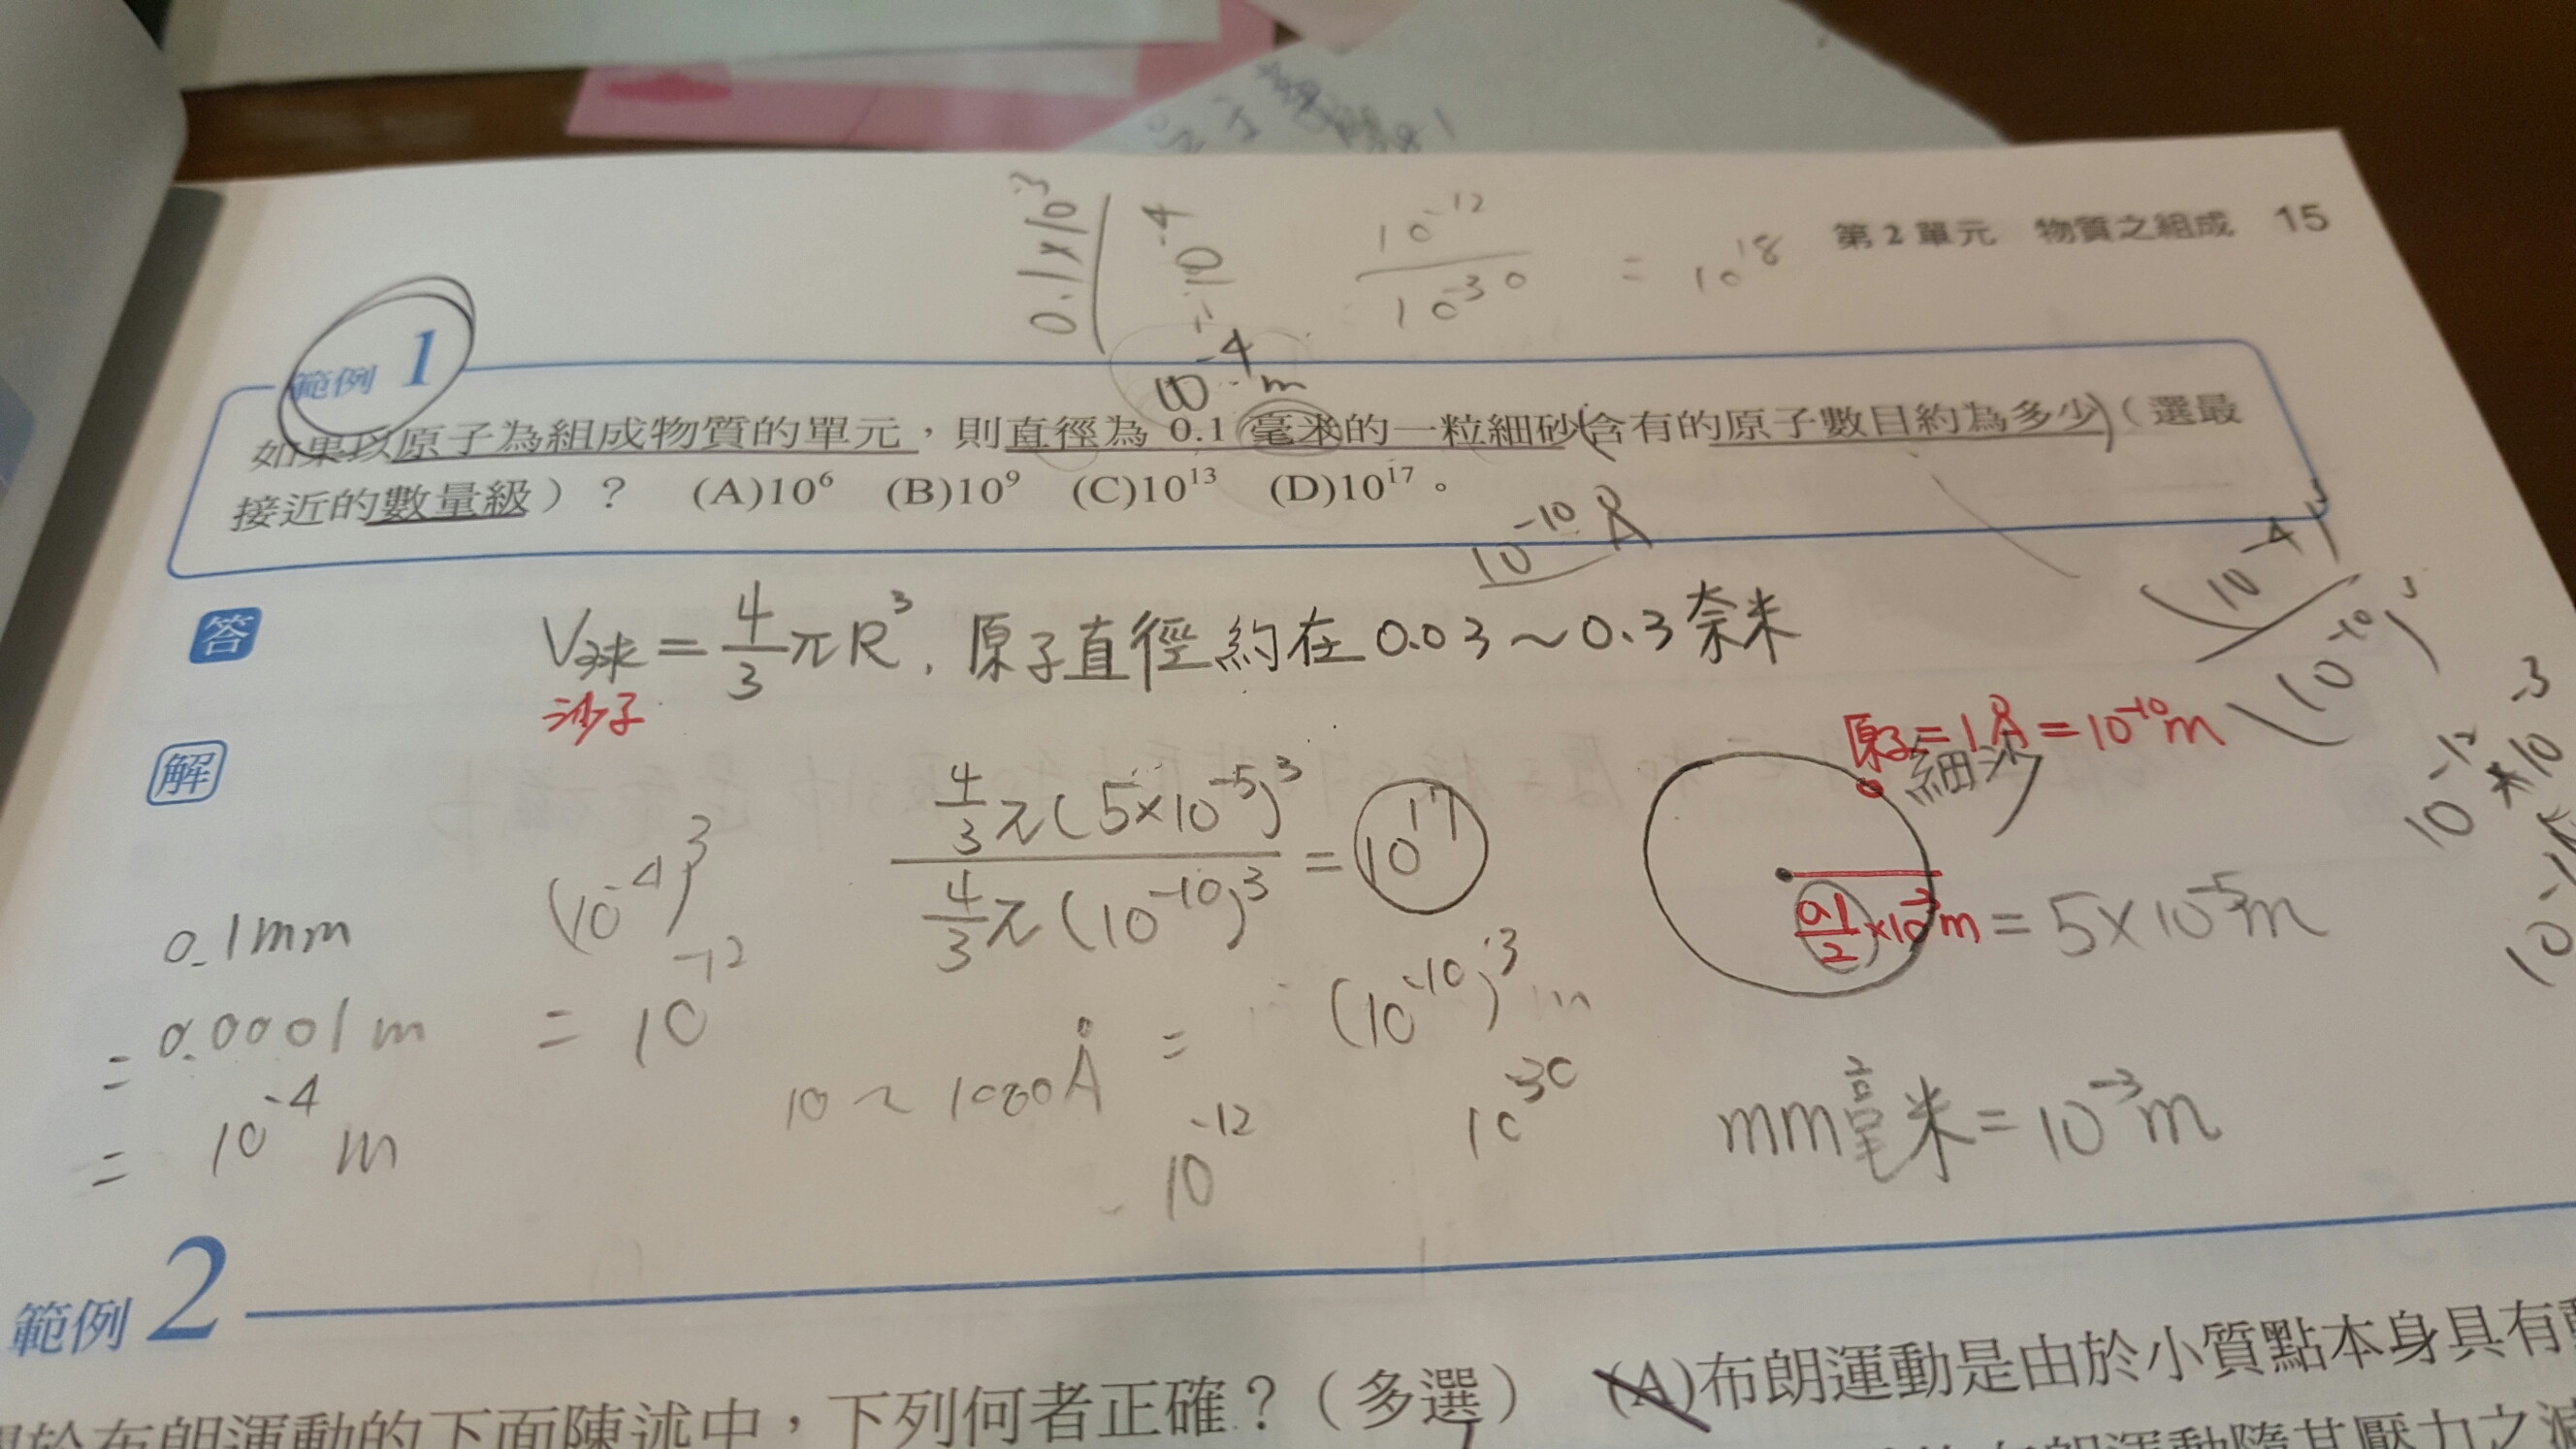 0.1×10⁻³
=10⁻⁴
10⁻¹²
10⁻³⁰
= 10¹⁸
第 2 單元 物質之組成 15
範例 1
10⁻⁴ m
如果以原子為組成物質的單元，則直徑為 0.1 毫米的一粒細砂含有的原子數目約為多少（選最
接近的數量級）？ (A)10⁶ (B)10⁹ (C)10¹³ (D)10¹⁷。
10⁻¹⁰ Å
(10⁻⁴)³
(10⁻¹⁰)³
答
V球 = 4/3 πR³, 原子直徑約在0.03～0.3奈米
沙子
原子=1Å=10⁻¹⁰m
細沙
解
4/3 π(5×10⁻⁵)³
4/3 π(10⁻¹⁰)³
= 10¹⁷
0.1/2 ×10⁻³m = 5×10⁻⁵m
0.1mm
= 0.0001m
= 10⁻⁴ m
(10⁻⁴)³
= 10⁻¹²
10～1000Å =
(10⁻¹⁰)³ m
10⁻¹²
10⁻³⁰
mm毫米=10⁻³m
範例 2
布朗運動的下面陳述中，下列何者正確？（多選） (A)布朗運動是由於小質點本身具有
布朗運動隨其壓力之